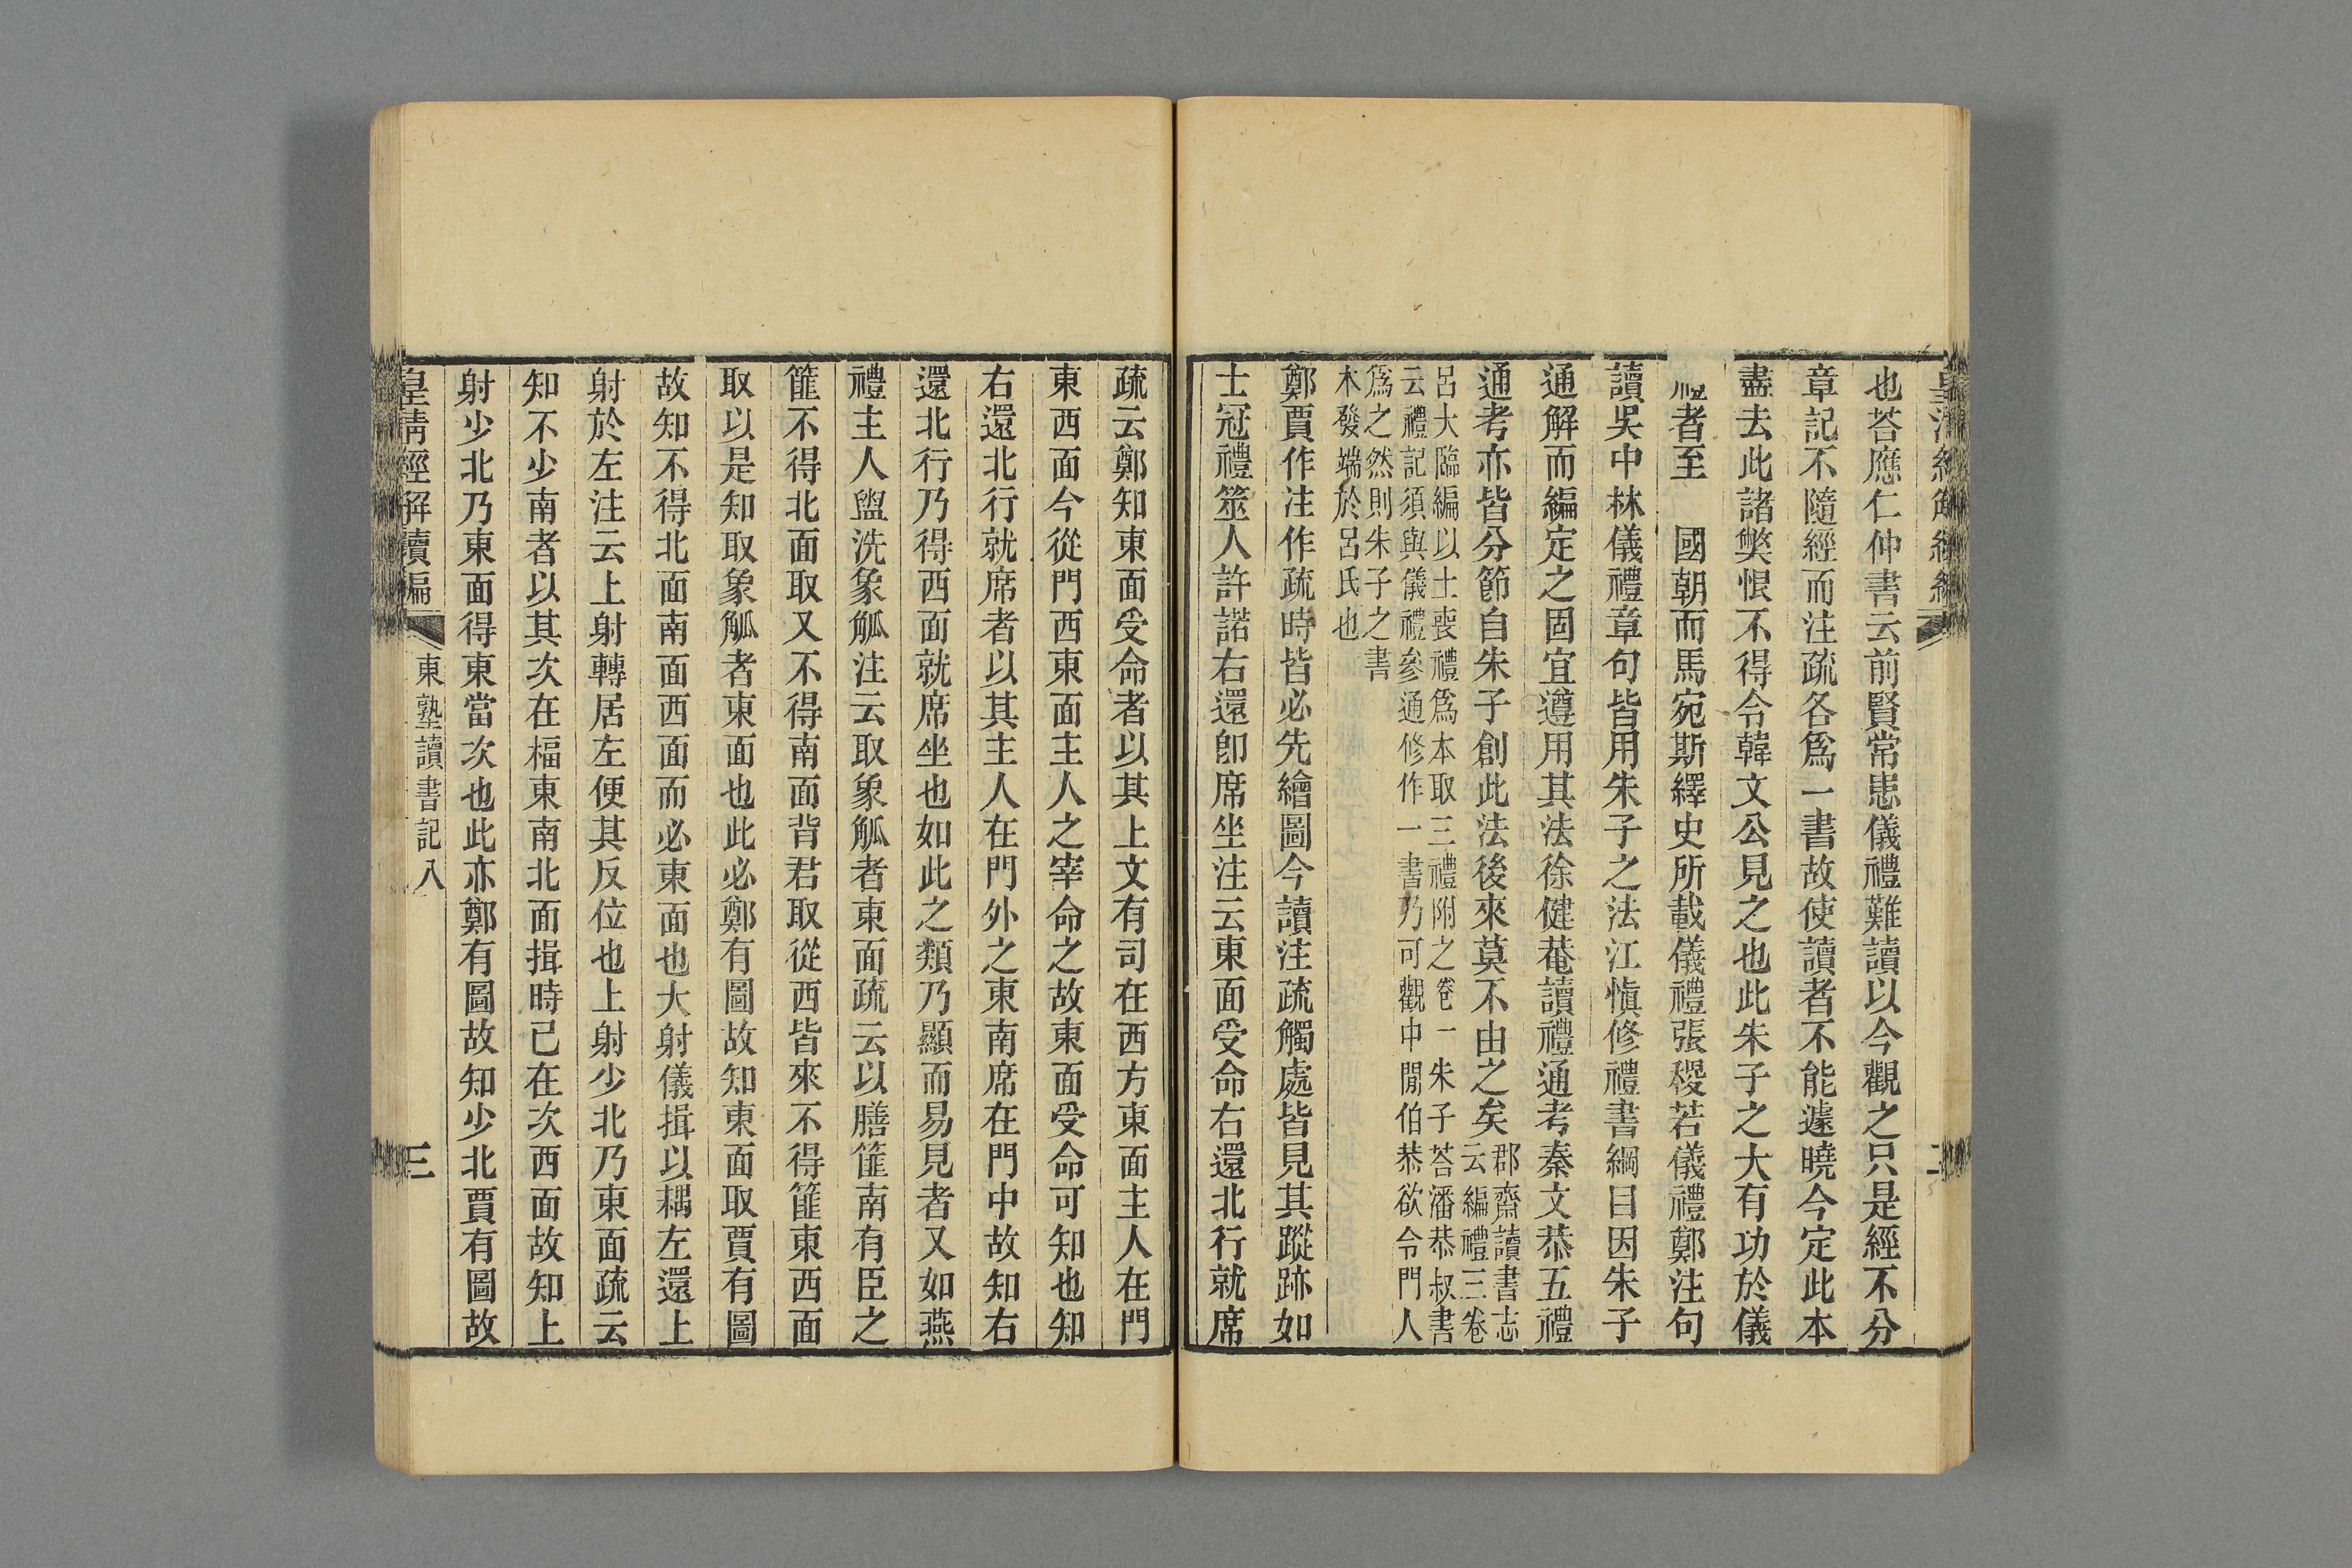 也荅應仁仲書云前賢常患儀禮難讀以今觀之只是經不分
章記不隨經而注疏各爲一書故使讀者不能遽曉今定此本
盡去此諸獘恨不得令韓文公見之也此朱子之大有功於儀
禮者至　國朝而馬宛斯繹史所載儀禮張稷若儀禮鄭注句
讀吳中林儀禮章句皆用朱子之法江愼修禮書綱目因朱子
通解而編定之固宜遵用其法徐健菴讀禮通考秦文恭五禮
通考亦皆分節自朱子創此法後來莫不由之矣
郡齋讀書志
云編禮三卷
呂大臨編以士喪禮爲本取三禮附之卷一朱子荅潘恭叔書
云禮記須與儀禮參通修作一書乃可觀中閒伯恭欲令門人
爲之然則朱子之書
木發端於呂氏也
鄭賈作注作疏時皆必先繪圖今讀注疏觸處皆見其蹤跡如
士冠禮筮人許諾右還卽席坐注云東面受命右還北行就席
疏云鄭知東面受命者以其上文有司在西方東面主人在門
東西面今從門西東面主人之宰命之故東面受命可知也知
右還北行就席者以其主人在門外之東南席在門中故知右
還北行乃得西面就席坐也如此之類乃顯而易見者又如燕
禮主人盥洗象觚注云取象觚者東面疏云以膳篚南有臣之
篚不得北面取又不得南面背君取從西皆來不得篚東西面
取以是知取象觚者東面也此必鄭有圖故知東面取賈有圖
故知不得北面南面西面而必東面也大射儀揖以耦左還上
射於左注云上射轉居左便其反位也上射少北乃東面疏云
知不少南者以其次在楅東南北面揖時已在次西面故知上
射少北乃東面得東當次也此亦鄭有圖故知少北賈有圖故
皇清經解續編
東塾讀書記八
三